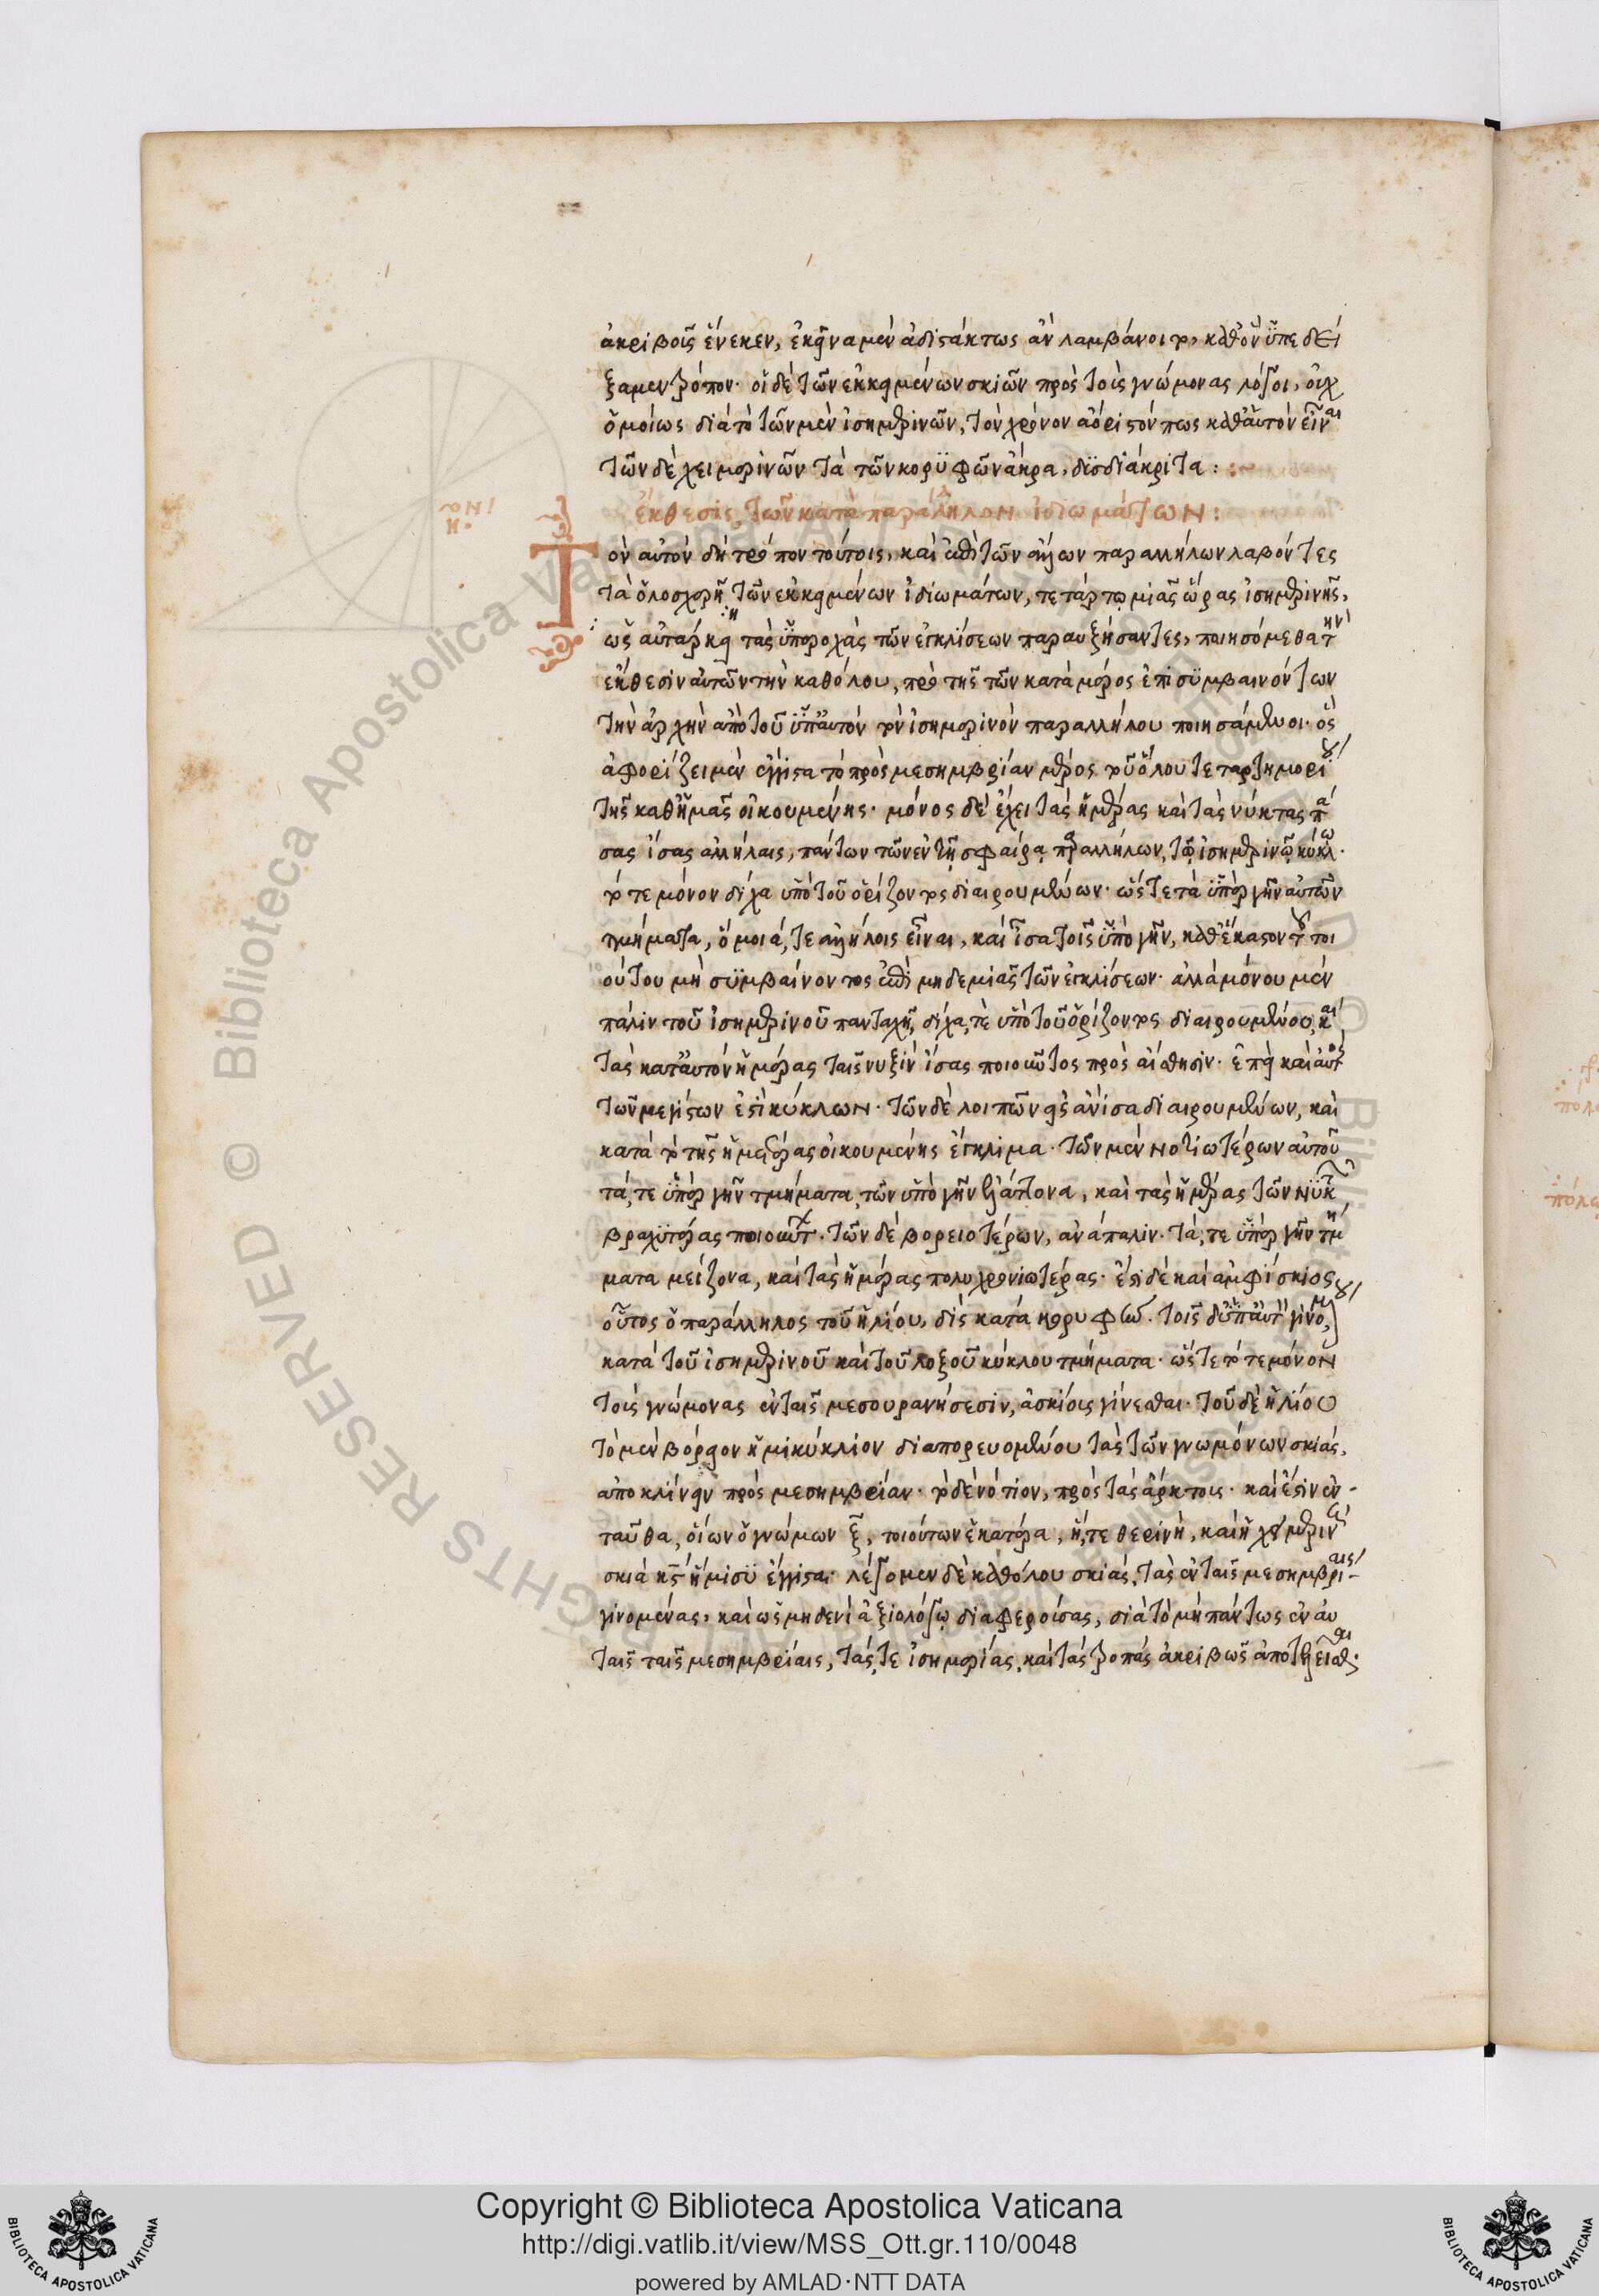 ἀκριβοῦς ἕνεκεν, ἐκεῖνα μὲν ἀδιστάκτως ἂν λαμβάνοιτο, καθ' ὃν ὑπεδεί
ξαμεν τρόπον· οἱ δὲ τῶν ἐκκειμένων σκιῶν πρὸς τοὺς γνώμονας λόγοι, οὐχ
ὁμοίως διὰ τὸ τῶν μὲν ἰσημερινῶν, τὸν χρόνον ἀόριστόν πως καθ' αὑτὸν εἶναι
τῶν δὲ χειμερινῶν τὰ τῶν κορυφῶν ἄκρα, δυσδιάκριτα :
ἔκθεσις τῶν κατὰ παράλληλον ἰδιωμάτων :
Τὸν αὐτὸν δὴ τρόπον τούτοις, καὶ ἐπὶ τῶν ἄλλων παραλλήλων λαβόντες
τὰ ὁλοσχερῆ τῶν ἐκκειμένων ἰδιωμάτων, τετάρτῳ μιᾶς ὥρας ἰσημερινῆς,
ὡς αὐτάρκη τὰς ὑπεροχὰς τῶν ἐγκλίσεων παραυξήσαντες, ποιησόμεθα τὴν
ἔκθεσιν αὐτῶν τὴν καθόλου, πρὸ τῆς τῶν κατὰ μέρος ἐπισυμβαινόντων
τὴν ἀρχὴν ἀπὸ τοῦ ὑπ' αὐτὸν τὸν ἰσημερινὸν παραλλήλου ποιησάμενοι· ὃς
ἀφορίζει μὲν ἔγγιστα τὸ πρὸς μεσημβρίαν μέρος τοῦ ὅλου τεταρτημορίου
τῆς καθ' ἡμᾶς οἰκουμένης· μόνος δὲ ἔχει τὰς ἡμέρας καὶ τὰς νύκτας πά
σας ἴσας ἀλλήλαις, πάντων τῶν ἐν τῇ σφαίρᾳ παραλλήλων, τῷ ἰσημερινῷ κύκλῳ·
τότε μόνον δίχα ὑπὸ τοῦ ὁρίζοντος διαιρουμένων· ὥστε τὰ ὑπὲρ γῆν αὐτῶν
τμήματα, ὅμοιά τε ἀλλήλοις εἶναι, καὶ ἴσα τοῖς ὑπὸ γῆν, καθ' ἕκαστον τοῦ τοι
ούτου μὴ συμβαίνοντος ἐπὶ μηδεμιᾶς τῶν ἐγκλίσεων· ἀλλὰ μόνου μὲν
πάλιν τοῦ ἰσημερινοῦ πανταχῇ, δίχα τε ὑπὸ τοῦ ὁρίζοντος διαιρουμένου, καὶ
τὰς κατ' αὐτὸν ἡμέρας ταῖς νυξὶν ἴσας ποιοῦντος πρὸς αἴσθησιν· ἐπεὶ καὶ αὐτὸς
τῶν μεγίστων ἐστὶ κύκλων· τῶν δὲ λοιπῶν εἰς ἄνισα διαιρουμένων, καὶ
κατὰ τὸ τῆς ἡμετέρας οἰκουμένης ἔγκλιμα· τῶν μὲν νοτιωτέρων αὐτοῦ
τά τε ὑπὲρ γῆν τμήματα τῶν ὑπὸ γῆν ἐλάττονα, καὶ τὰς ἡμέρας τῶν νυκτῶν
βραχυτέρας ποιούντων. τῶν δὲ βορειοτέρων, ἀνάπαλιν· τά τε ὑπὲρ γῆν τμή
ματα μείζονα, καὶ τὰς ἡμέρας πολυχρονιωτέρας· ἔστι δὲ καὶ ἀμφίσκιος
οὗτος ὁ παράλληλος τοῦ ἡλίου, δὶς κατὰ κορυφὴν τοῖς ὑπ' αὐτὸν γινομένου
κατὰ τοῦ ἰσημερινοῦ καὶ τοῦ λοξοῦ κύκλου τμήματα· ὥστε τότε μόνον
τοὺς γνώμονας ἐν ταῖς μεσουρανήσεσιν, ἀσκίους γίνεσθαι· τοῦ δὲ ἡλίου
τὸ μὲν βόρειον ἡμικύκλιον διαπορευομένου τὰς τῶν γνωμόνων σκιάς,
ἀποκλίνειν πρὸς μεσημβρίαν· τὸ δὲ νότιον, πρὸς τὰς ἄρκτους· καὶ ἔστιν ἐν-
ταῦθα, οἵων ὁ γνώμων ξ, τοιούτων ἑκατέρα, ἥ τε θερινὴ, καὶ ἡ χειμερινὴ
σκιὰ κϛ ἥμισυ ἔγγιστα· λέγομεν δὲ καθόλου σκιάς, τὰς ἐν ταῖς μεσημβρίαις
γινομένας, καὶ ὡς μηδενὶ ἀξιολόγῳ διαφερούσας, διὰ τὸ μὴ πάντως ἐν αὐ
ταῖς ταῖς μεσημβρίαις, τάς τε ἰσημερίας, καὶ τὰς τροπὰς ἀκριβῶς ἀποτελεῖσθαι·
Copyright © Biblioteca Apostolica Vaticana
http://digi.vatlib.it/view/MSS_Ott.gr.110/0048
powered by AMLAD·NTT DATA
BIBLIOTECA APOSTOLICA VATICANA
BIBLIOTECA APOSTOLICA VATICANA